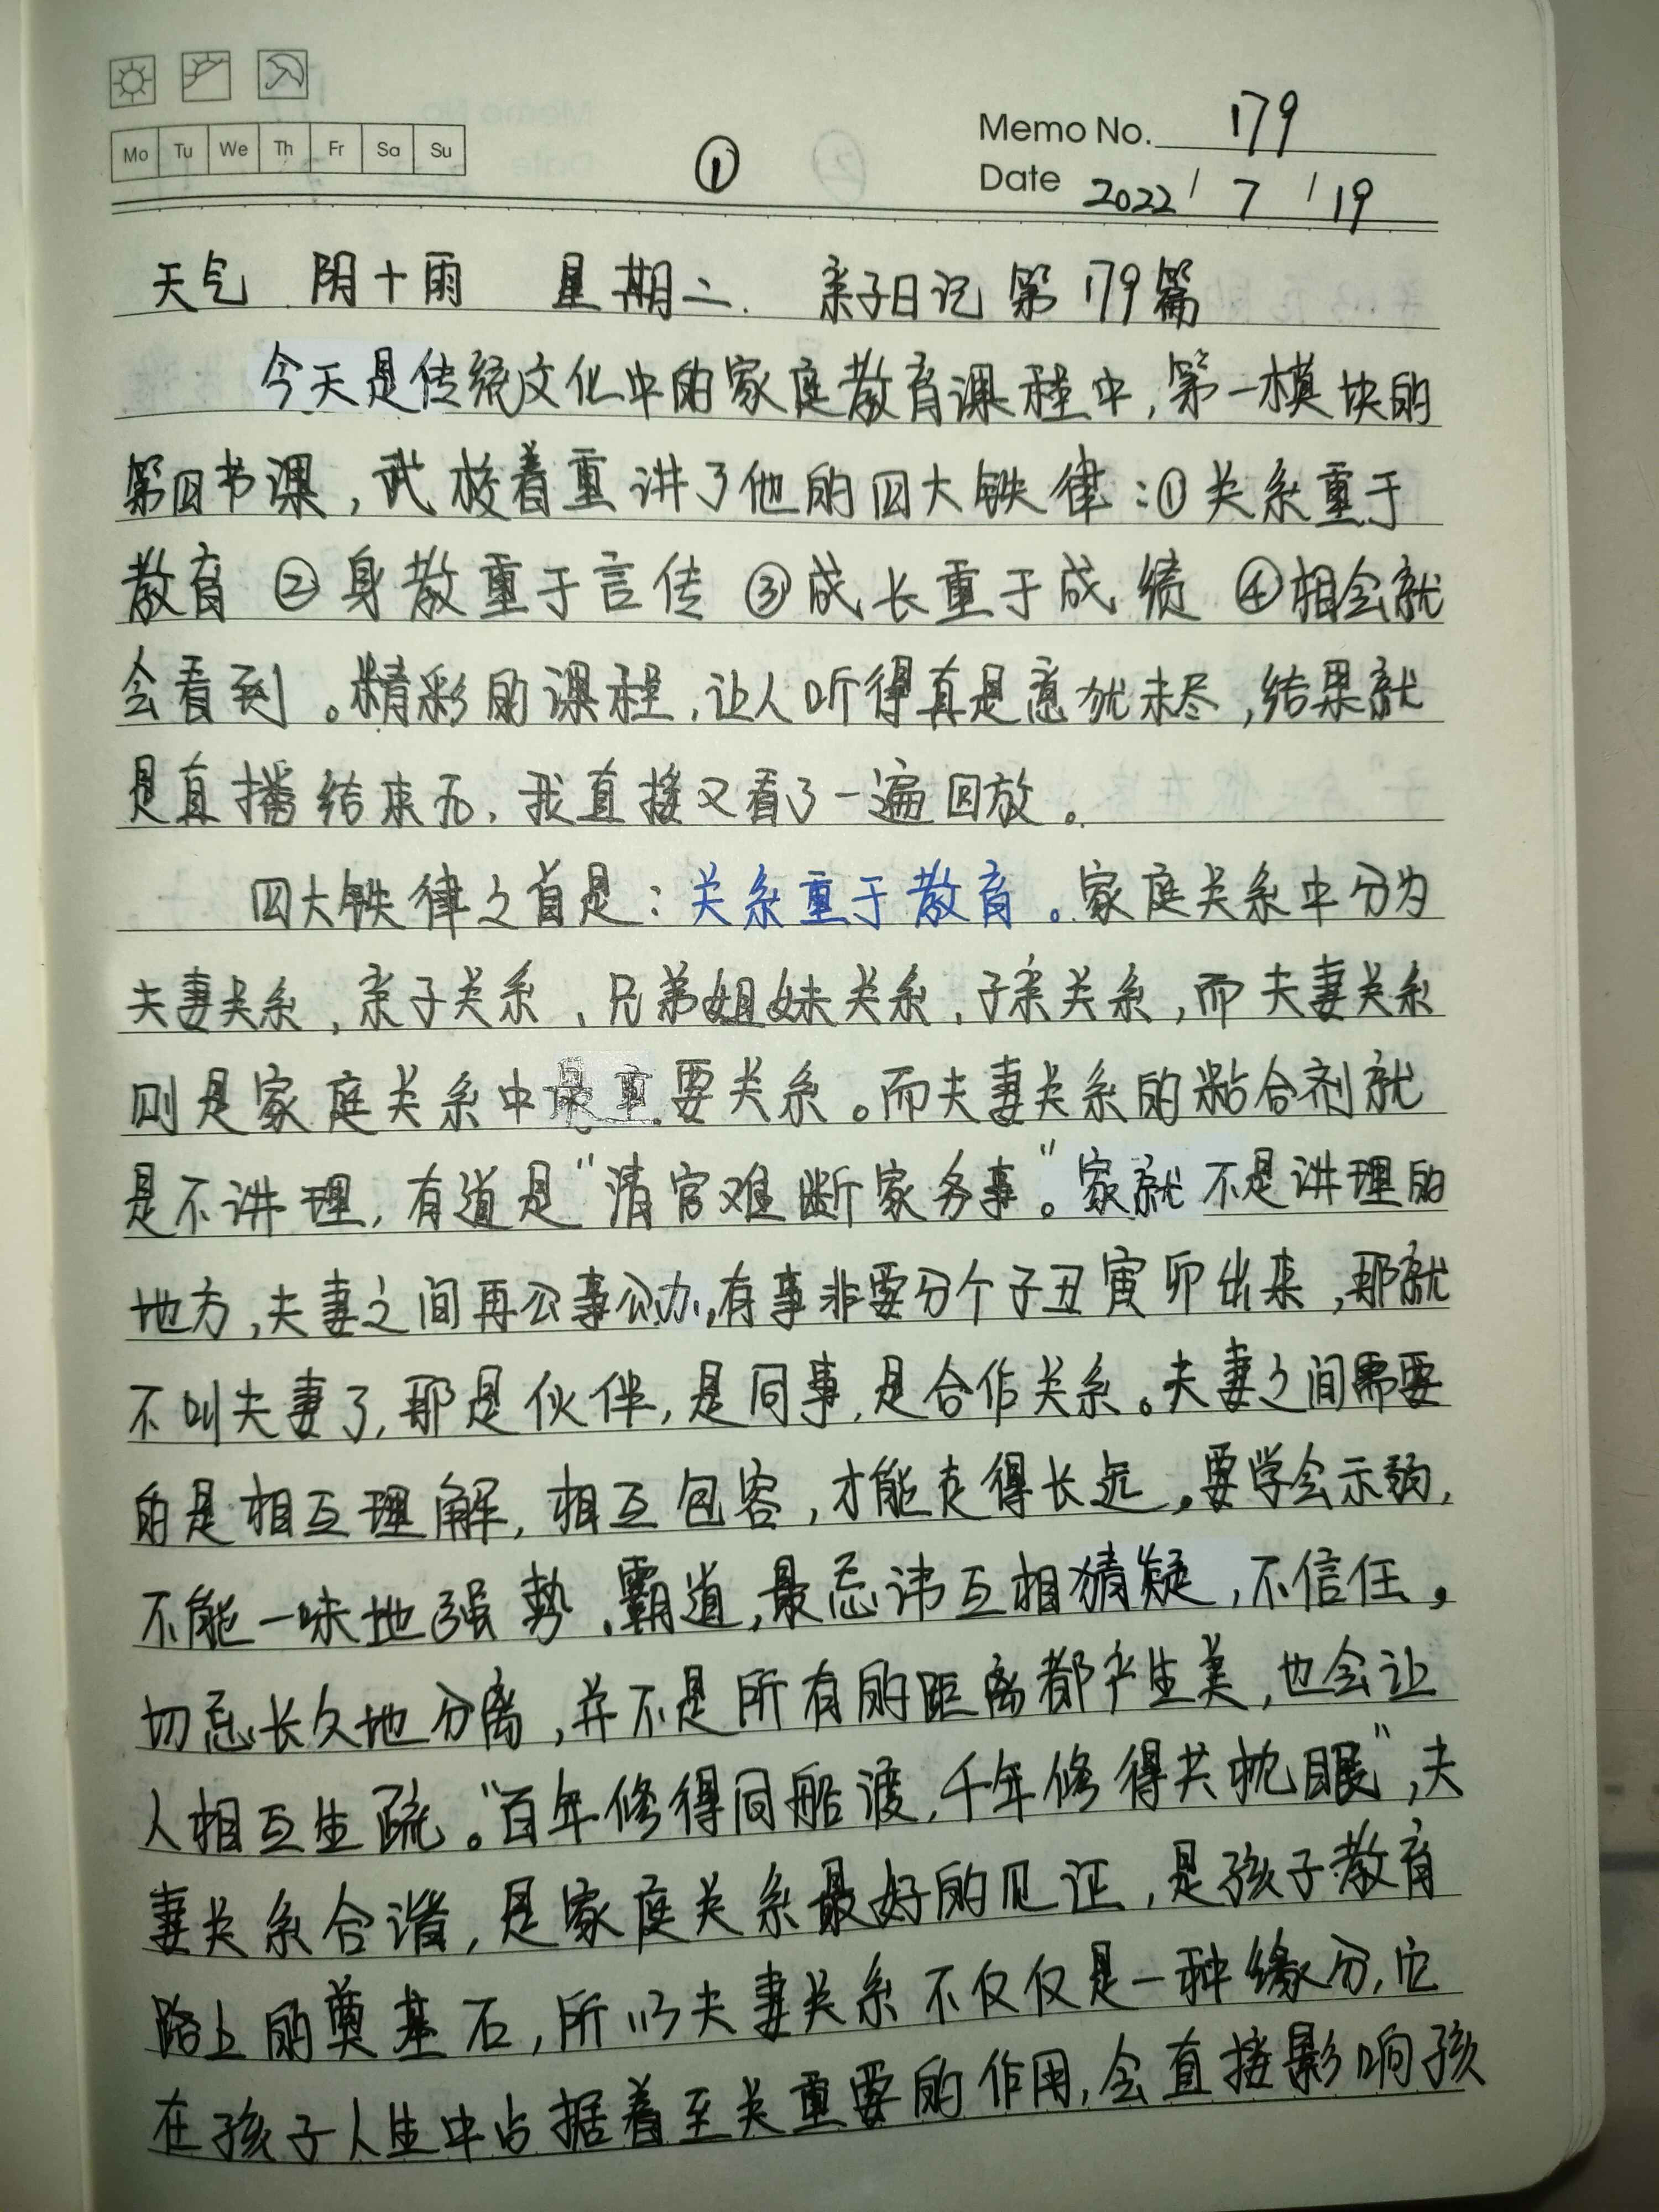 Mo Tu We Th Fr Sa Su
①
Memo No. 179
Date 2022 / 7 / 19
天气 阴+雨 星期二. 亲子日记 第179篇
今天是传统文化中的家庭教育课程中,第一模块的
第四节课,武校着重讲了他的四大铁律:①关系重于
教育 ②身教重于言传 ③成长重于成绩 ④相会就
会看到。精彩的课程,让人听得真是意犹未尽,结果就
是直播结束后,我直接又看了一遍回放。
四大铁律之首是:关系重于教育。家庭关系中分为
夫妻关系,亲子关系、兄弟姐妹关系,子亲关系,而夫妻关系
则是家庭关系中最重要关系。而夫妻关系的粘合剂就
是不讲理,有道是“清官难断家务事”。家就不是讲理的
地方,夫妻之间再公事公办,有事非要分个子丑寅卯出来,那就
不叫夫妻了,那是伙伴,是同事,是合作关系。夫妻之间需要
的是相互理解,相互包容,才能走得长远。要学会示弱,
不能一味地强势、霸道,最忌讳互相猜疑,不信任,
切忌长久地分离,并不是所有的距离都产生美,也会让
人相互生疏。“百年修得同船渡,千年修得共枕眠”,夫
妻关系合谐,是家庭关系最好的见证,是孩子教育
路上的奠基石,所以夫妻关系不仅仅是一种缘分,它
在孩子人生中占据着至关重要的作用,会直接影响孩